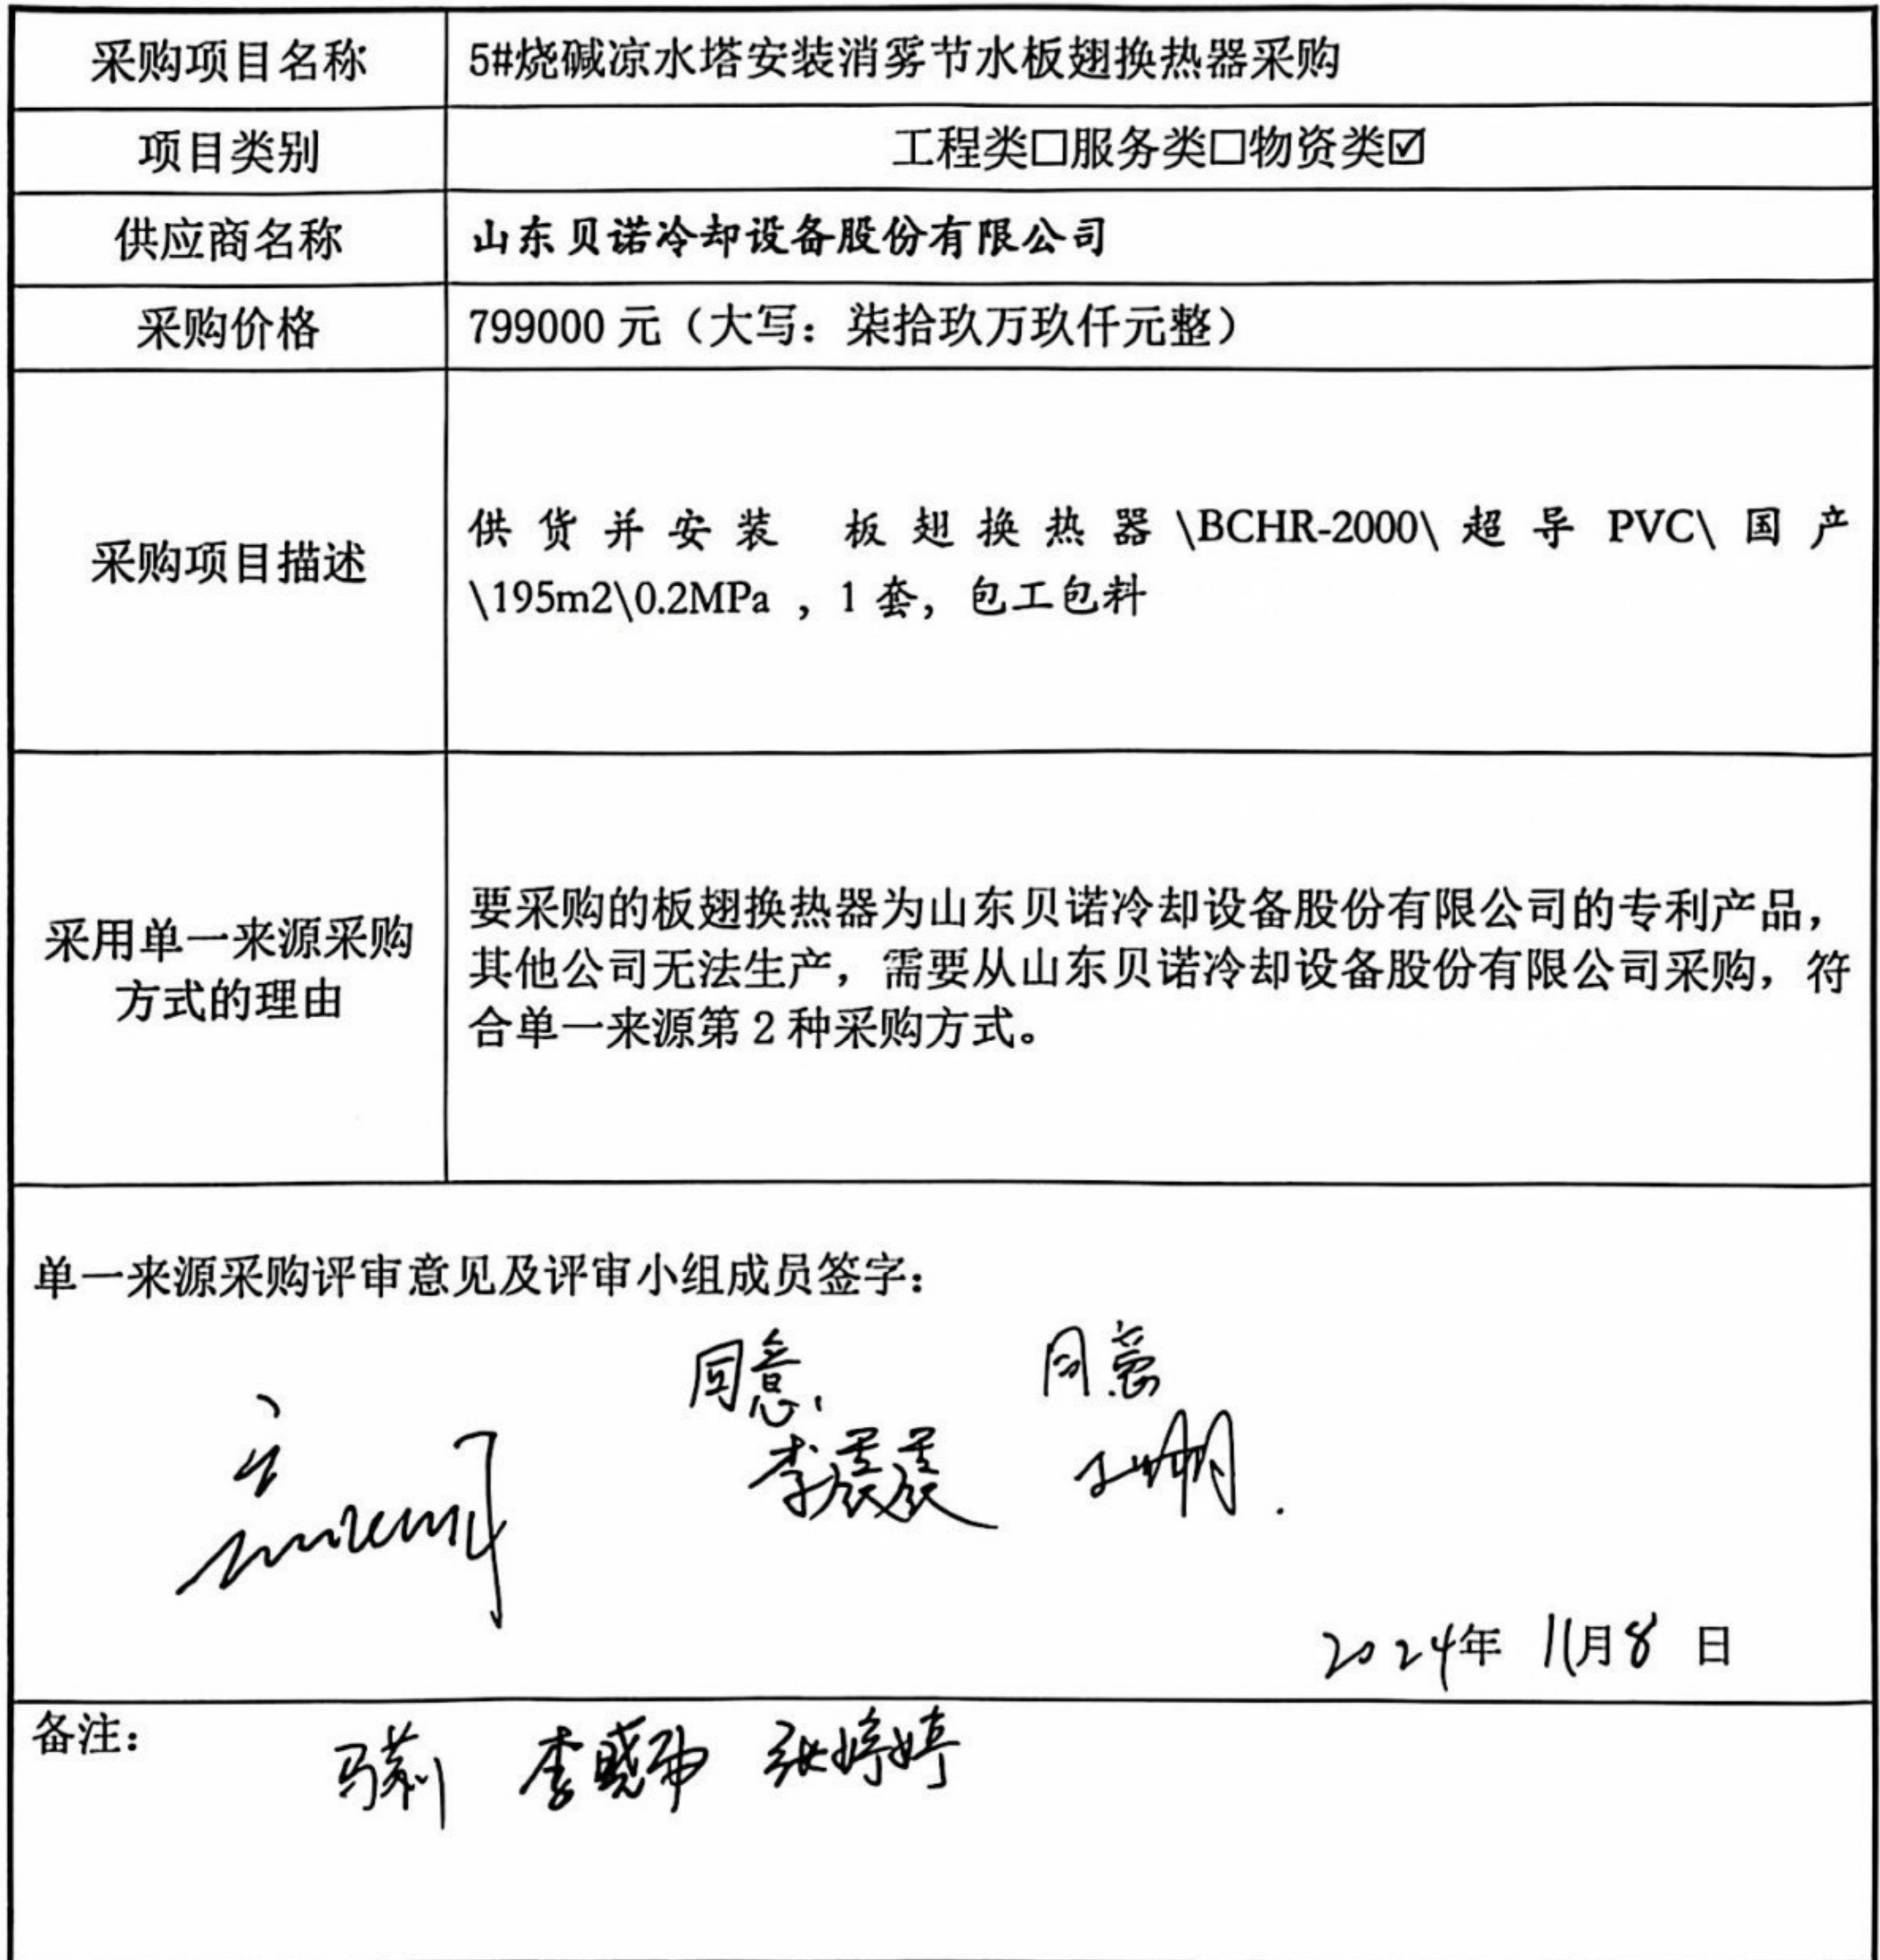 采购项目名称
5#烧碱凉水塔安装消雾节水板翅换热器采购
项目类别
工程类□服务类□物资类☑
供应商名称
山东贝诺冷却设备股份有限公司
采购价格
799000 元（大写：柒拾玖万玖仟元整）
采购项目描述
供货并安装 板翅换热器\BCHR-2000\超导 PVC\国产
\195m2\0.2MPa ，1 套，包工包料
采用单一来源采购
方式的理由
要采购的板翅换热器为山东贝诺冷却设备股份有限公司的专利产品，
其他公司无法生产，需要从山东贝诺冷却设备股份有限公司采购，符
合单一来源第 2 种采购方式。
单一来源采购评审意见及评审小组成员签字：
同意， 同意
李晨晨
2024年 11月8 日
备注：
张婷婷